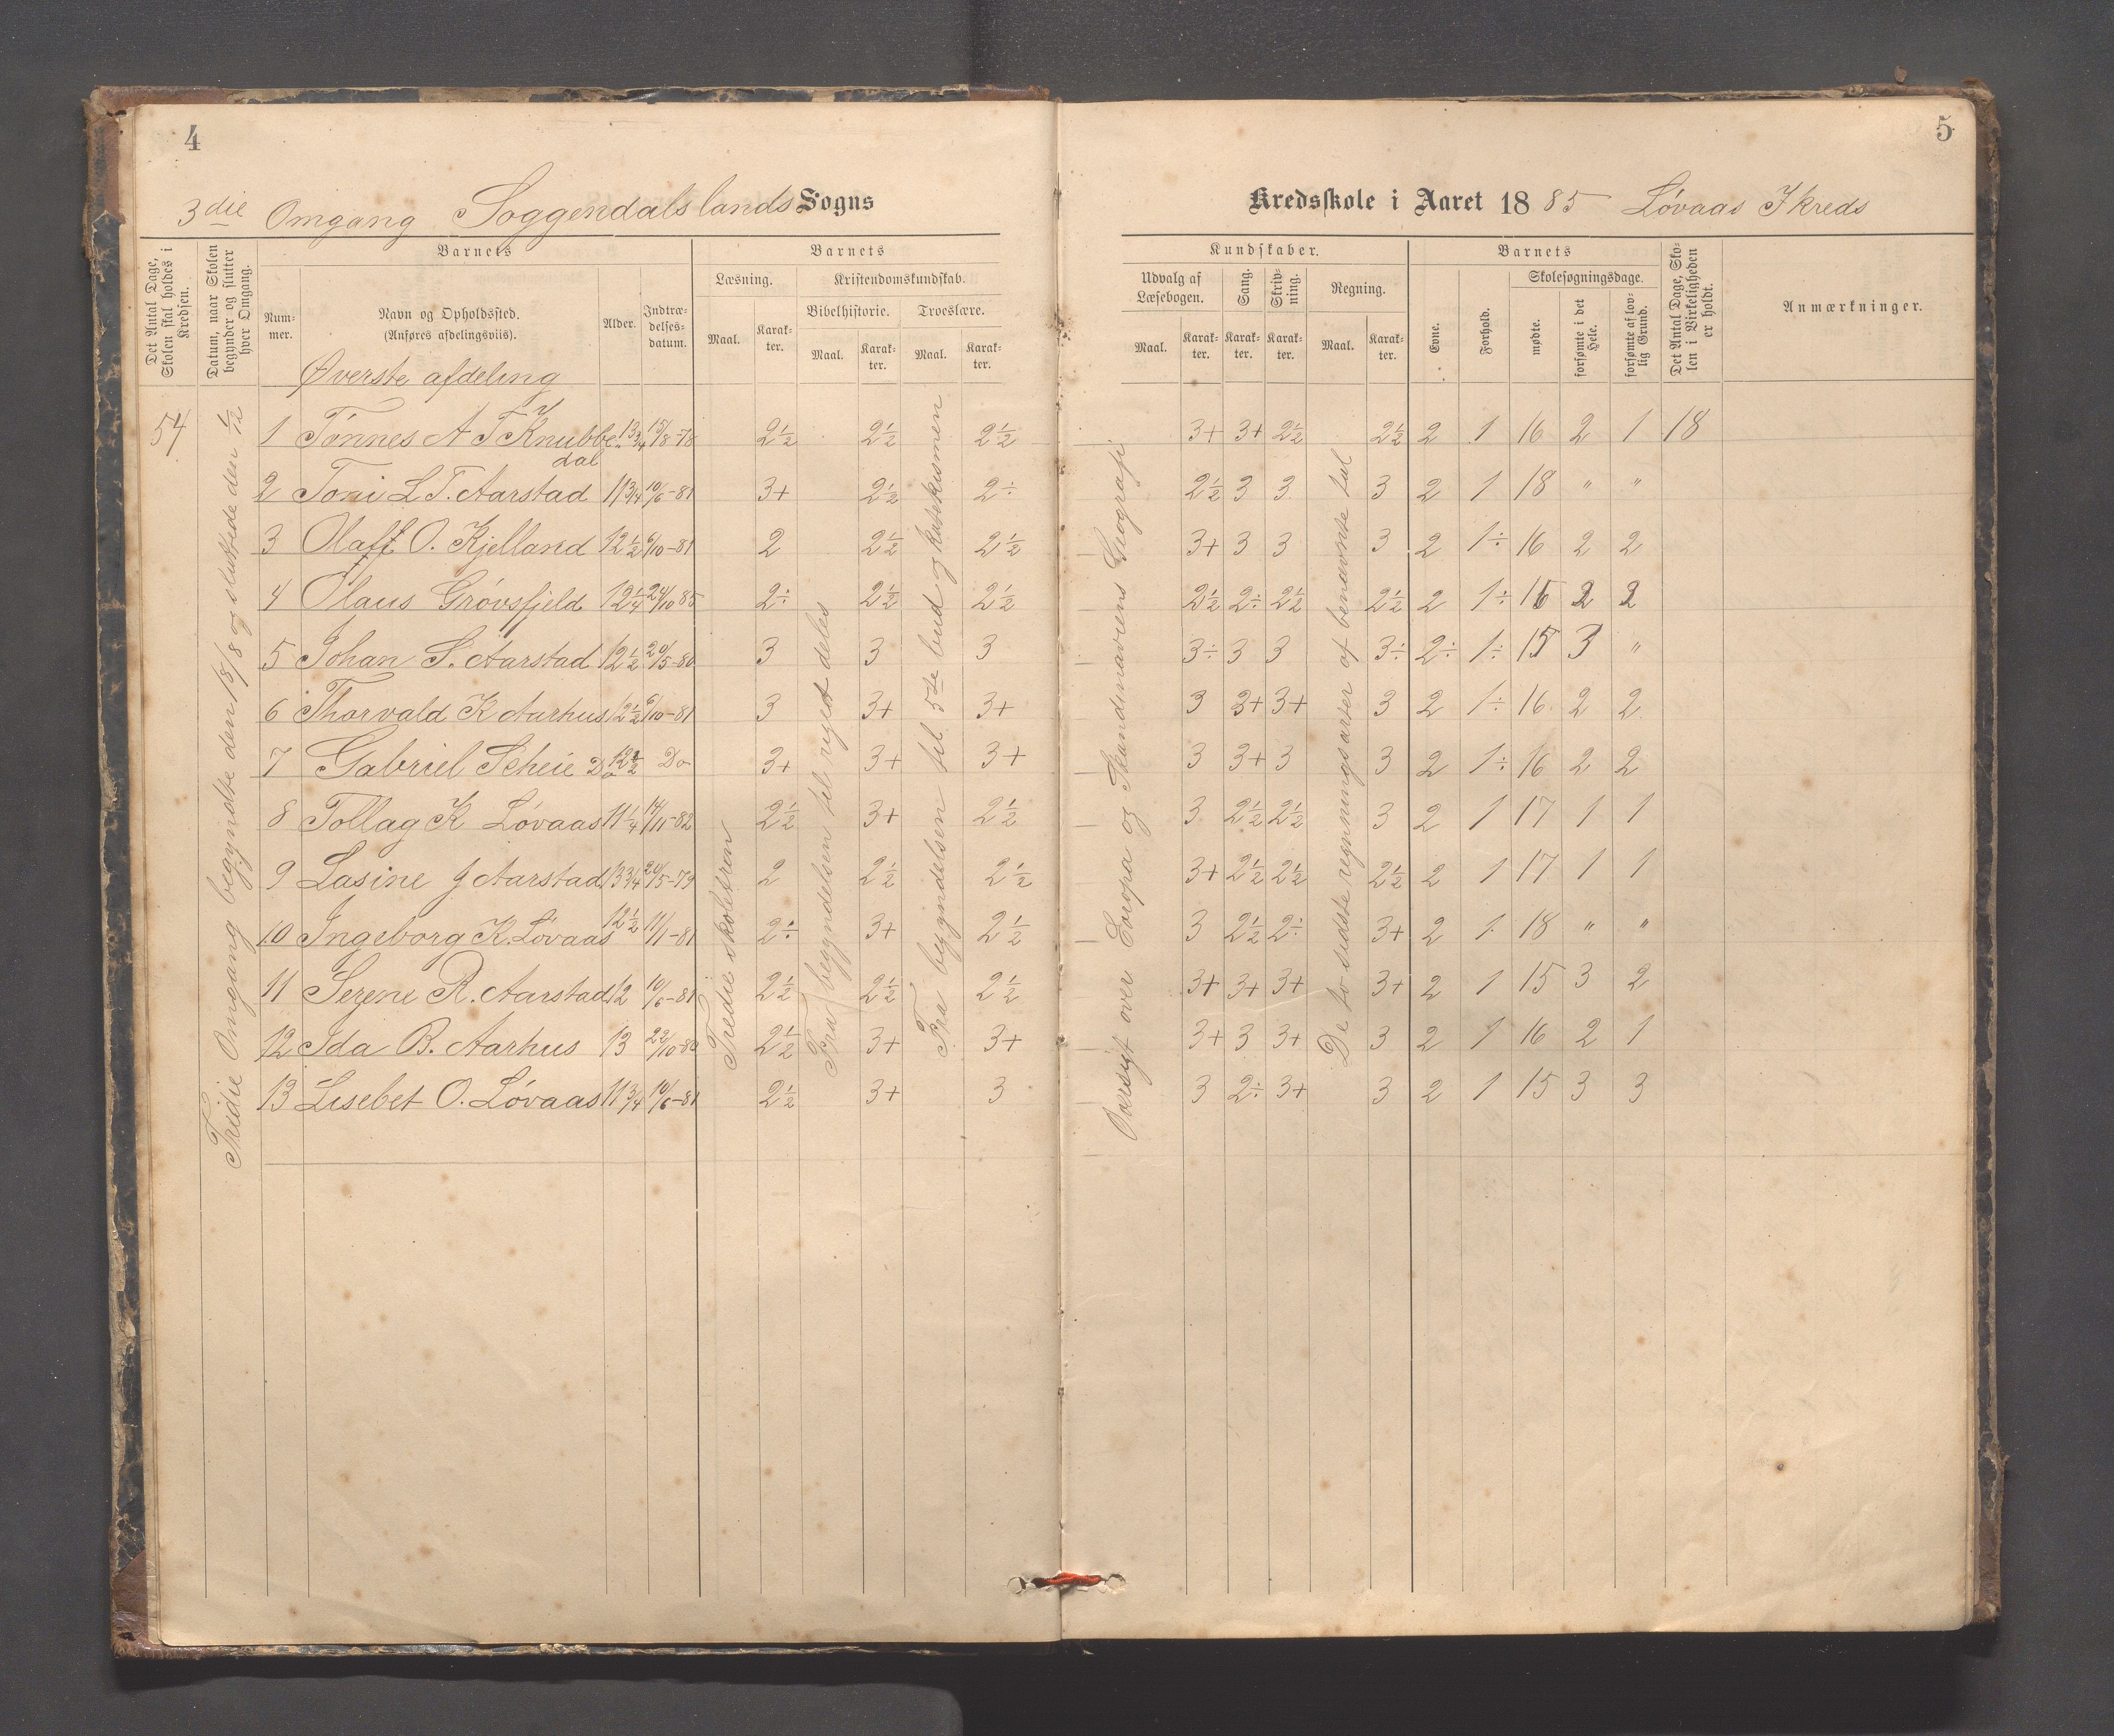 4
5
3die Omgang Soggendals lands Sogns
Kredsskole i Aaret 1885 Løvaas Skreds
Det Antal Dage, Skolen skal holdes i Kredsen.
Datum, naar Skolen begynder og slutter hver Omgang.
Barnets
Nummer.
Navn og Opholdssted.
(Anføres afdelingsviis).
Alder.
Indtrædelsesdatum.
Barnets
Læsning.
Maal.
Karakter.
Kristendomskundskab.
Bibelhistorie.
Maal.
Karakter.
Troeslære.
Maal.
Karakter.
Kundskaber.
Udvalg af Læsebogen.
Maal.
Karakter.
Sang.
Karakter.
Skrivning.
Karakter.
Regning.
Maal.
Karakter.
Barnets
Evne.
Forhold.
Skolesøgningsdage.
mødte.
forsømte i det Hele.
forsømte af lovlig Grund.
Det Antal Dage, Skolen i Virkeligheden er holdt.
Anmærkninger.
Øverste afdeling
54
Tredie Omgang begyndte den 18/8 og sluttede den 1/12
Tredie skoletrin
Fra begyndelsen til rigets deles
Fra begyndelsen til 5te bud og katekismen
Oversigt over Evropa og Skandinaviens Geografi
De to sidste regningsarter af benævnte tal
1 Tønnes A T Knubbedal 13 3/4 15/8-78 2½ 2½ 2½ 3+ 3+ 2½ 2½ 2 1 16 2 1 18
2 Toni L T. Aarstad 11 3/4 10/6-81 3+ 2½ 2÷ 2½ 3 3 3 2 1 18 " "
3 Olaff O. Kjelland 12½ 6/10-81 2 2½ 2½ 3+ 3 3 3 2 1÷ 16 2 2
4 Olaus Grøvsfjeld 12¼ 24/10 85 2÷ 2½ 2½ 2½ 2÷ 2½ 2½ 2 1÷ 16 2 2
5 Johan S. Aarstad 12½ 20/5-80 3 3 3 3÷ 3 3 3÷ 2÷ 1÷ 15 3 "
6 Thorvald K Aarhus 12½ 6/10-81 3 3+ 3+ 3 3+ 3+ 3 2 1÷ 16 2 2
7 Gabriel Scheie Do 12½ Do 3+ 3+ 3+ 3 3+ 3 3 2 1÷ 16 2 2
8 Tollag K Løvaas 11¼ 14/11-82 2½ 3+ 2½ 3 2½ 2½ 3 2 1 17 1 1
9 Lasine J Aarstad 13 3/4 20/5-79 2 2½ 2½ 3+ 2½ 2½ 2½ 2 1 17 1 1
10 Ingeborg K. Løvaas 12½ 11/1-81 2÷ 3+ 2½ 3 2½ 2÷ 3+ 2 1 18 " "
11 Serene R. Aarstad 12 10/6-81 2½ 2½ 2½ 3+ 3+ 3+ 3+ 2 1 15 3 2
12 Ida B. Aarhus 13 22/10-80 2½ 3+ 3+ 3+ 3 3+ 3 2 1 16 2 1
13 Lisebet O. Løvaas 11 3/4 10/6-81 2½ 3+ 3 3 2÷ 3+ 3 2 1 15 3 3